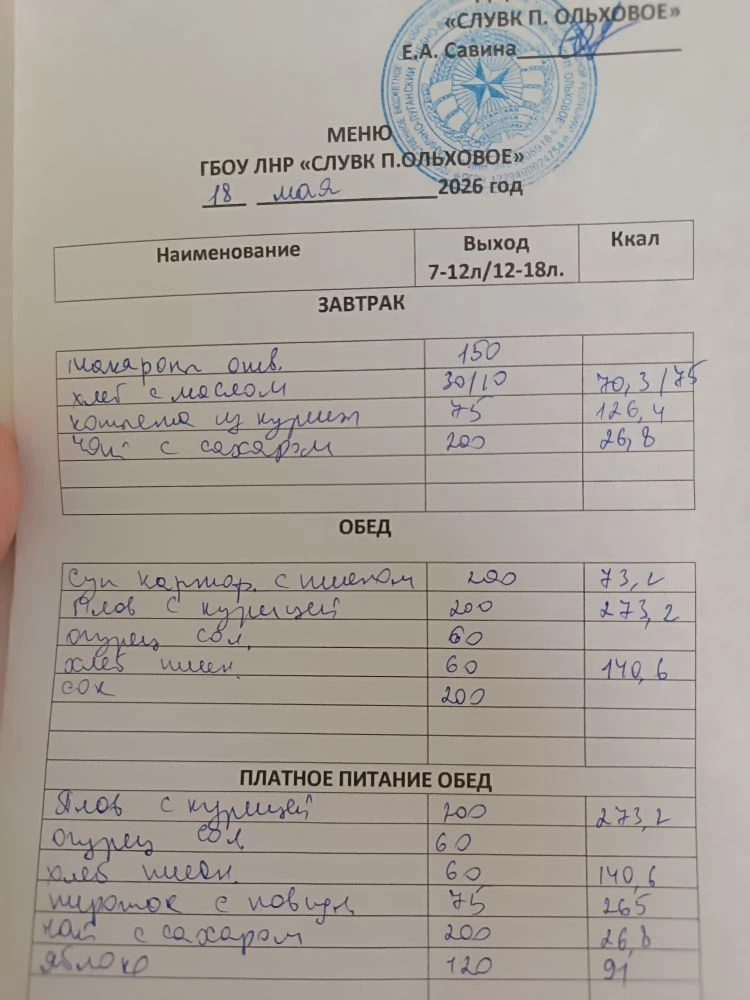 «СЛУВК П. ОЛЬХОВОЕ»
Е.А. Савина
МЕНЮ
ГБОУ ЛНР «СЛУВК П.ОЛЬХОВОЕ»
18 мая 2026 год
Наименование Выход 7-12л/12-18л. Ккал
ЗАВТРАК
макароны отв. 150
хлеб с маслом 30/10 70,3/75
котлета из куриц 75 126,4
чай с сахаром 200 26,8
ОБЕД
Суп картоф. с пшеном 200 73,2
Плов с курицей 200 273,2
огурец сол. 60
хлеб пшен. 60 140,6
сок 200
ПЛАТНОЕ ПИТАНИЕ ОБЕД
Плов с курицей 200 273,2
огурец сол 60
хлеб пшен. 60 140,6
пирожок с повидл 75 265
чай с сахаром 200 26,8
яблоко 120 91